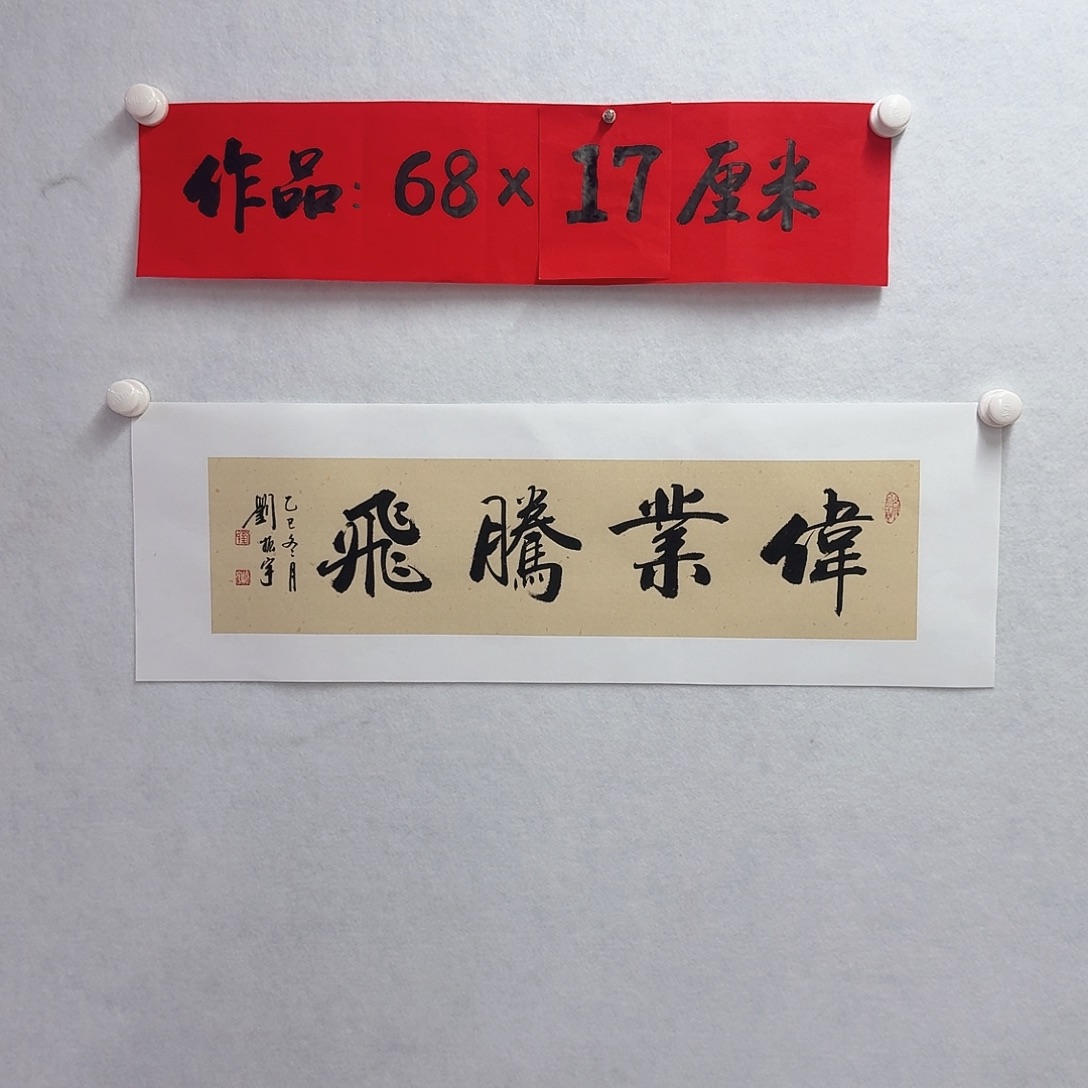 作品：68×17厘米
偉業騰飛
乙巳冬月
劉振宇